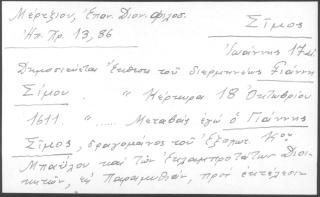 Μέρτζιον, Επαν. Διον. Φιλοσ. Σῖμος
Ἀπ. Πρ. 13, 86
Ἰωάννης 17 αἰ.
Δημοσιεύεται Ἔκθεσις τοῦ διερμηνέως Γιάννη
Σίμου. " Κέρκυρα 18 Ὀκτωβρίου
1611. " ..... Μεταβάς ἐγώ ὁ Γιάννης
Σῖμος, δραγομᾶνος τοῦ Ἐξοχωτ. Κου
Μπαΐλου καί τῶν Ἐκλαμπροτάτων Διοι-
κητῶν, εἰς Παραμυθιάν, πρός ἐκτέλεσιν